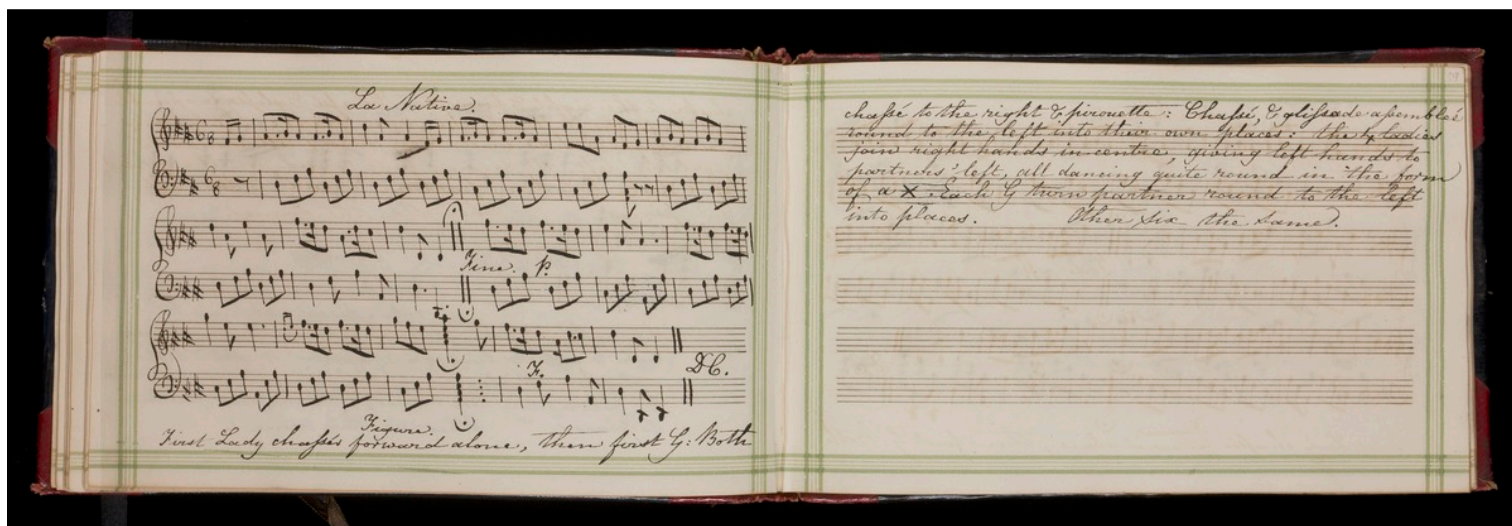 La Native.
6/8
6/8
Fine. P.
F. DC.
Figure.
First Lady chassés forward alone, then first G: Both
chassé to the right & pirouette: Chassé, & glissade assemblée
round to the left into their own places: the 4 ladies
join right hands in centre, giving left hands to
partners' left, all dancing quite round in the form
of a X Each G turn partner round to the left
into places. Other six the same.